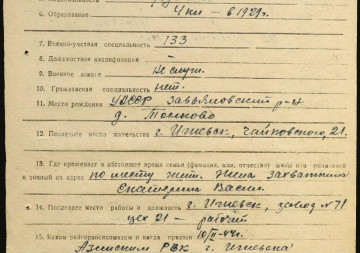 6. Образование 4 кл. – в 1929г.
7. Военно-учетная специальность 133
8. Должностная квалификация –
9. Военное звание Не служ.
10. Гражданская специальность нет.
11. Место рождения УАССР Завьяловский р-н
д.
12. Последнее место жительства г. Ижевск, Чайковского, 21.
13. Где проживает в настоящее время семья (фамилия, имя, отчество) жены или родителей
и точный их адрес по месту жит. Жена
Екатерина Васил.
14. Последнее место работы и должность г. Ижевск, завод №71
цех 21 – рабочий
15. Каким райгорвоенкоматом и когда призван 10/II-44г.
Азинским РВК г. Ижевска